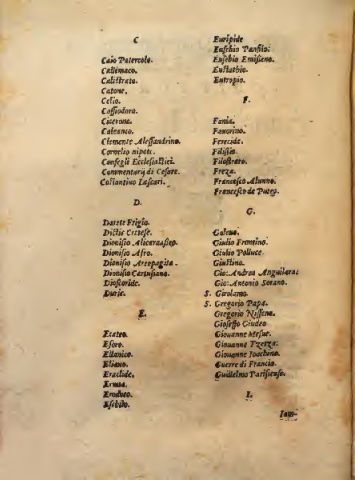 C
Caio Patercolo.
Calimaco.
Calistrato.
Catone.
Celio.
Cassiodoro.
Cicerone.
Clemente Alessandrino.
Cornelio nipote.
Consegli Ecclesiastici.
Commentarij di Cesare.
Costantino Lascari.
D.
Darete Frigio.
Dionisio Alicarnasseo.
Dionisio Afro.
Dionisio Areopagita.
Dionisio Cartusiano.
Dioscoride.
Durio.
E.
Eforo.
Ellanico.
Eliano.
Eraclide.
Erodoto.
Euripide
Eusebio Panfilo:
Eusebio Emisseno.
Eustathio.
Eutropio.
F.
Fania.
Fauorino.
Ferecide.
Filostrato.
Freza.
Francesco Alunno.
G.
Galeno.
Giulio Frontino.
Giulio Polluce.
Giustino.
Gio: Andrea Anguilara:
Gio: Antonio
S. Girolamo.
S. Gregorio Papa.
Gregorio Nisseno.
Gioseffo Giudeo
Giouanne Mesue.
Giouanne Tzerza:
Giouanne Ioachino.
Guerre di Francia.
Guillelmo Parisiense.
I.